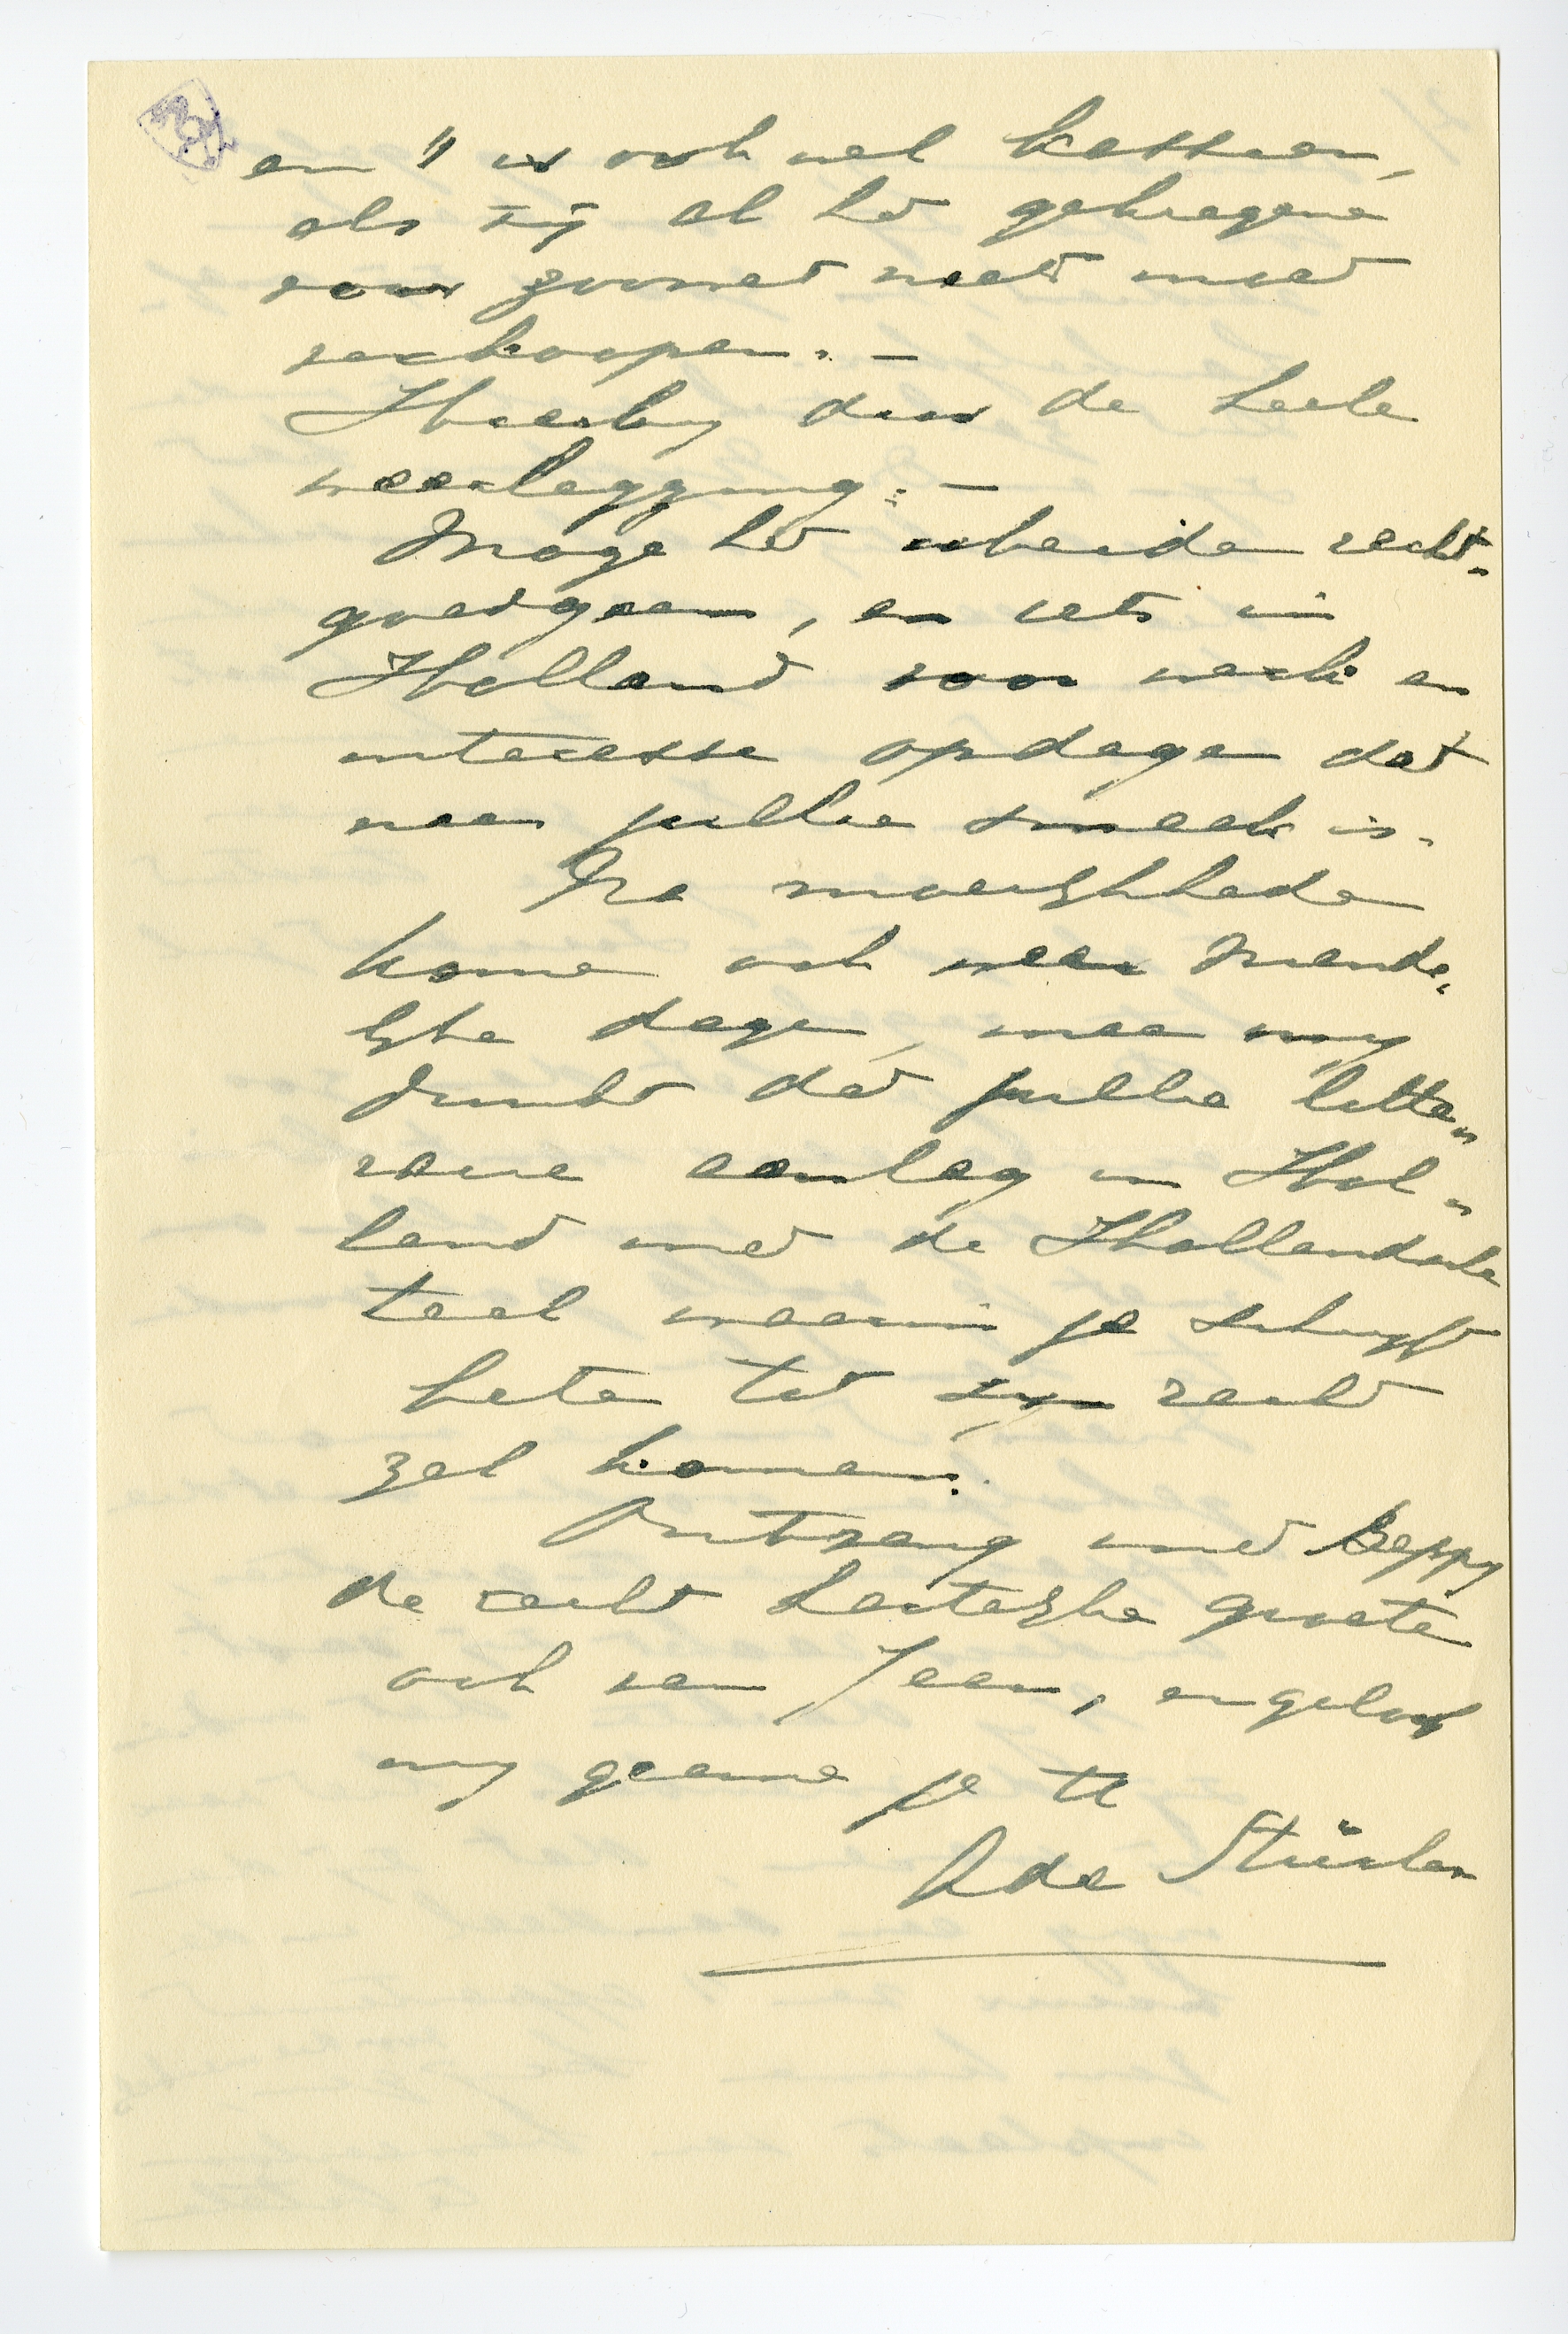 en 't is ook wel hard
als zij al het gekregene
voor zoowat niets moet
verkoopen. —
Hierbij dus de heele
weerlegging. —
Moge het u beiden recht-
goed gaan, en iets in
Holland voor werk en
interesse opdagen dat
naar jullie smaak is.
Na moeilijkheden
komen ook weer vriende-
lijke dagen, mee mij
dunkt dat jullie litte-
raire aanleg in Hol-
land met de Hollandsche
taal waarin je schrijft
beter tot zijn recht
zal komen.
Ontvang met Beppy
de recht hartelijke groeten
ook van Jean, en geloof
mij gaarne je tte
Ada Stürler